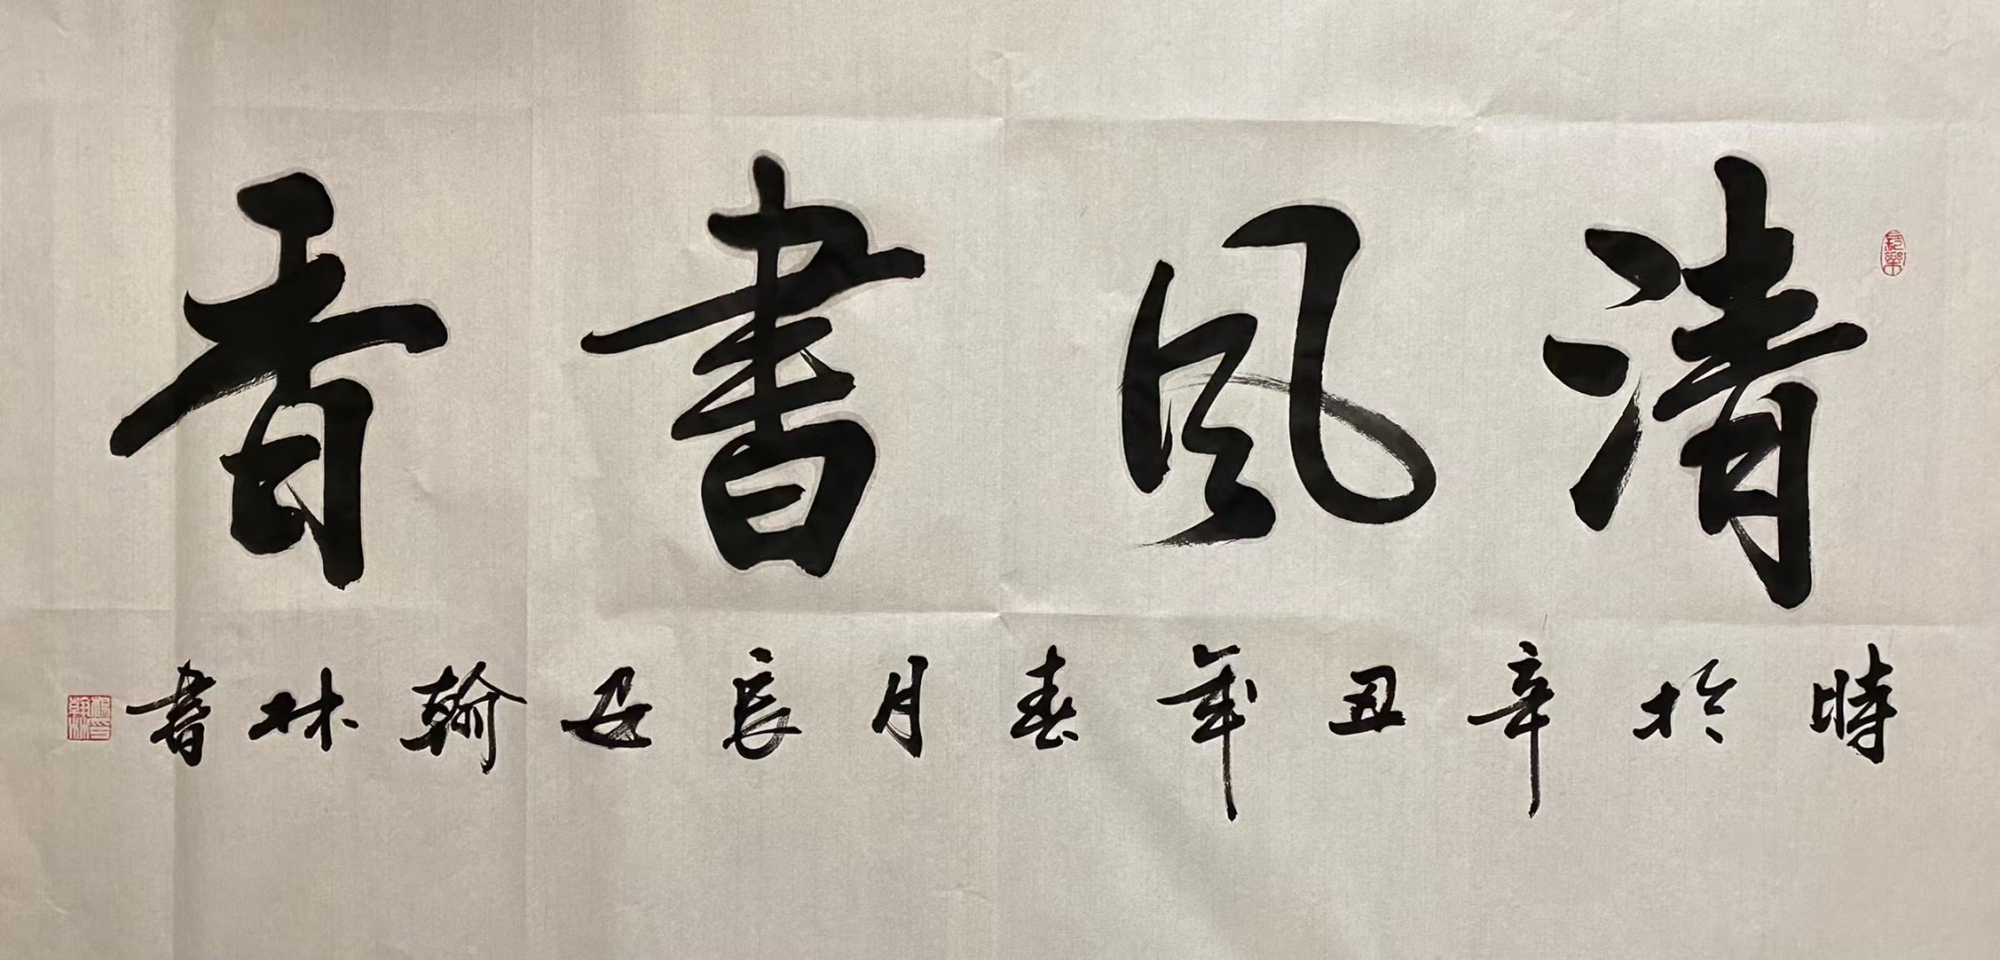 清風書香
時於辛丑年春月良辰翰林書